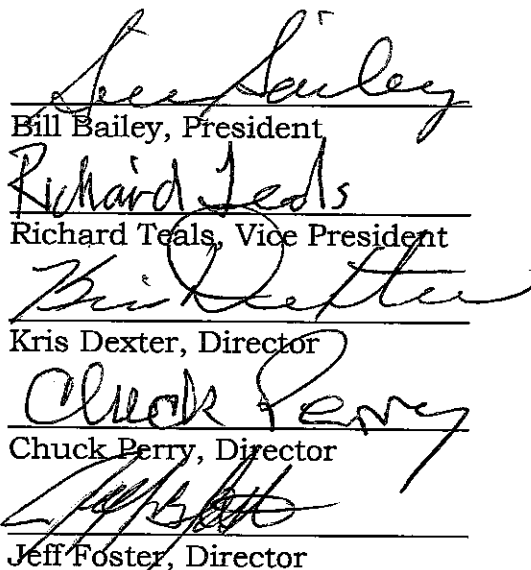 Bill Bailey, President
Richard Teals
Richard Teals, Vice President
Kris Dexter
Kris Dexter, Director
Chuck Perry
Chuck Perry, Director
Jeff Foster, Director